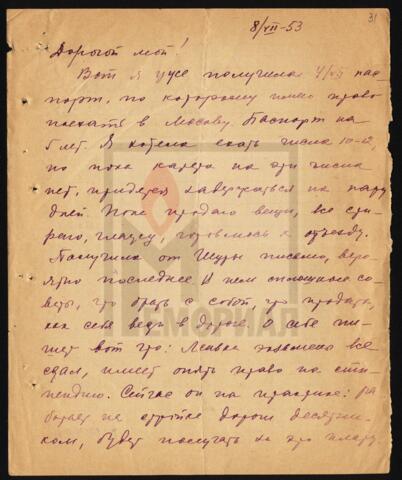 31
8/VII-53
Дорогой мой!
Вот я уже получила 4/VII пас-
порт, по которому имею право
поехать в Москву. Паспорт на
5 лет. Я хотела ехать числа 10-12,
но пока карета на эти числа
нет, придется задержаться на пару
дней. Пока продаю вещи, все сти-
раю, глажу, готовлюсь к отъезду.
Получила от Шуры письмо, веро-
ятно последнее. В нем сплошные со-
веты, что брать с собой, что продать,
как себя вести в дороге. О себе пи-
шет вот что: Ленька экзамены все
сдал, имеет опять право на сти-
пендию. Сейчас он на практике: ра-
ботает на стройке дорог десятни-
ком, будет получать за это плату.
МЕМОРИАЛ